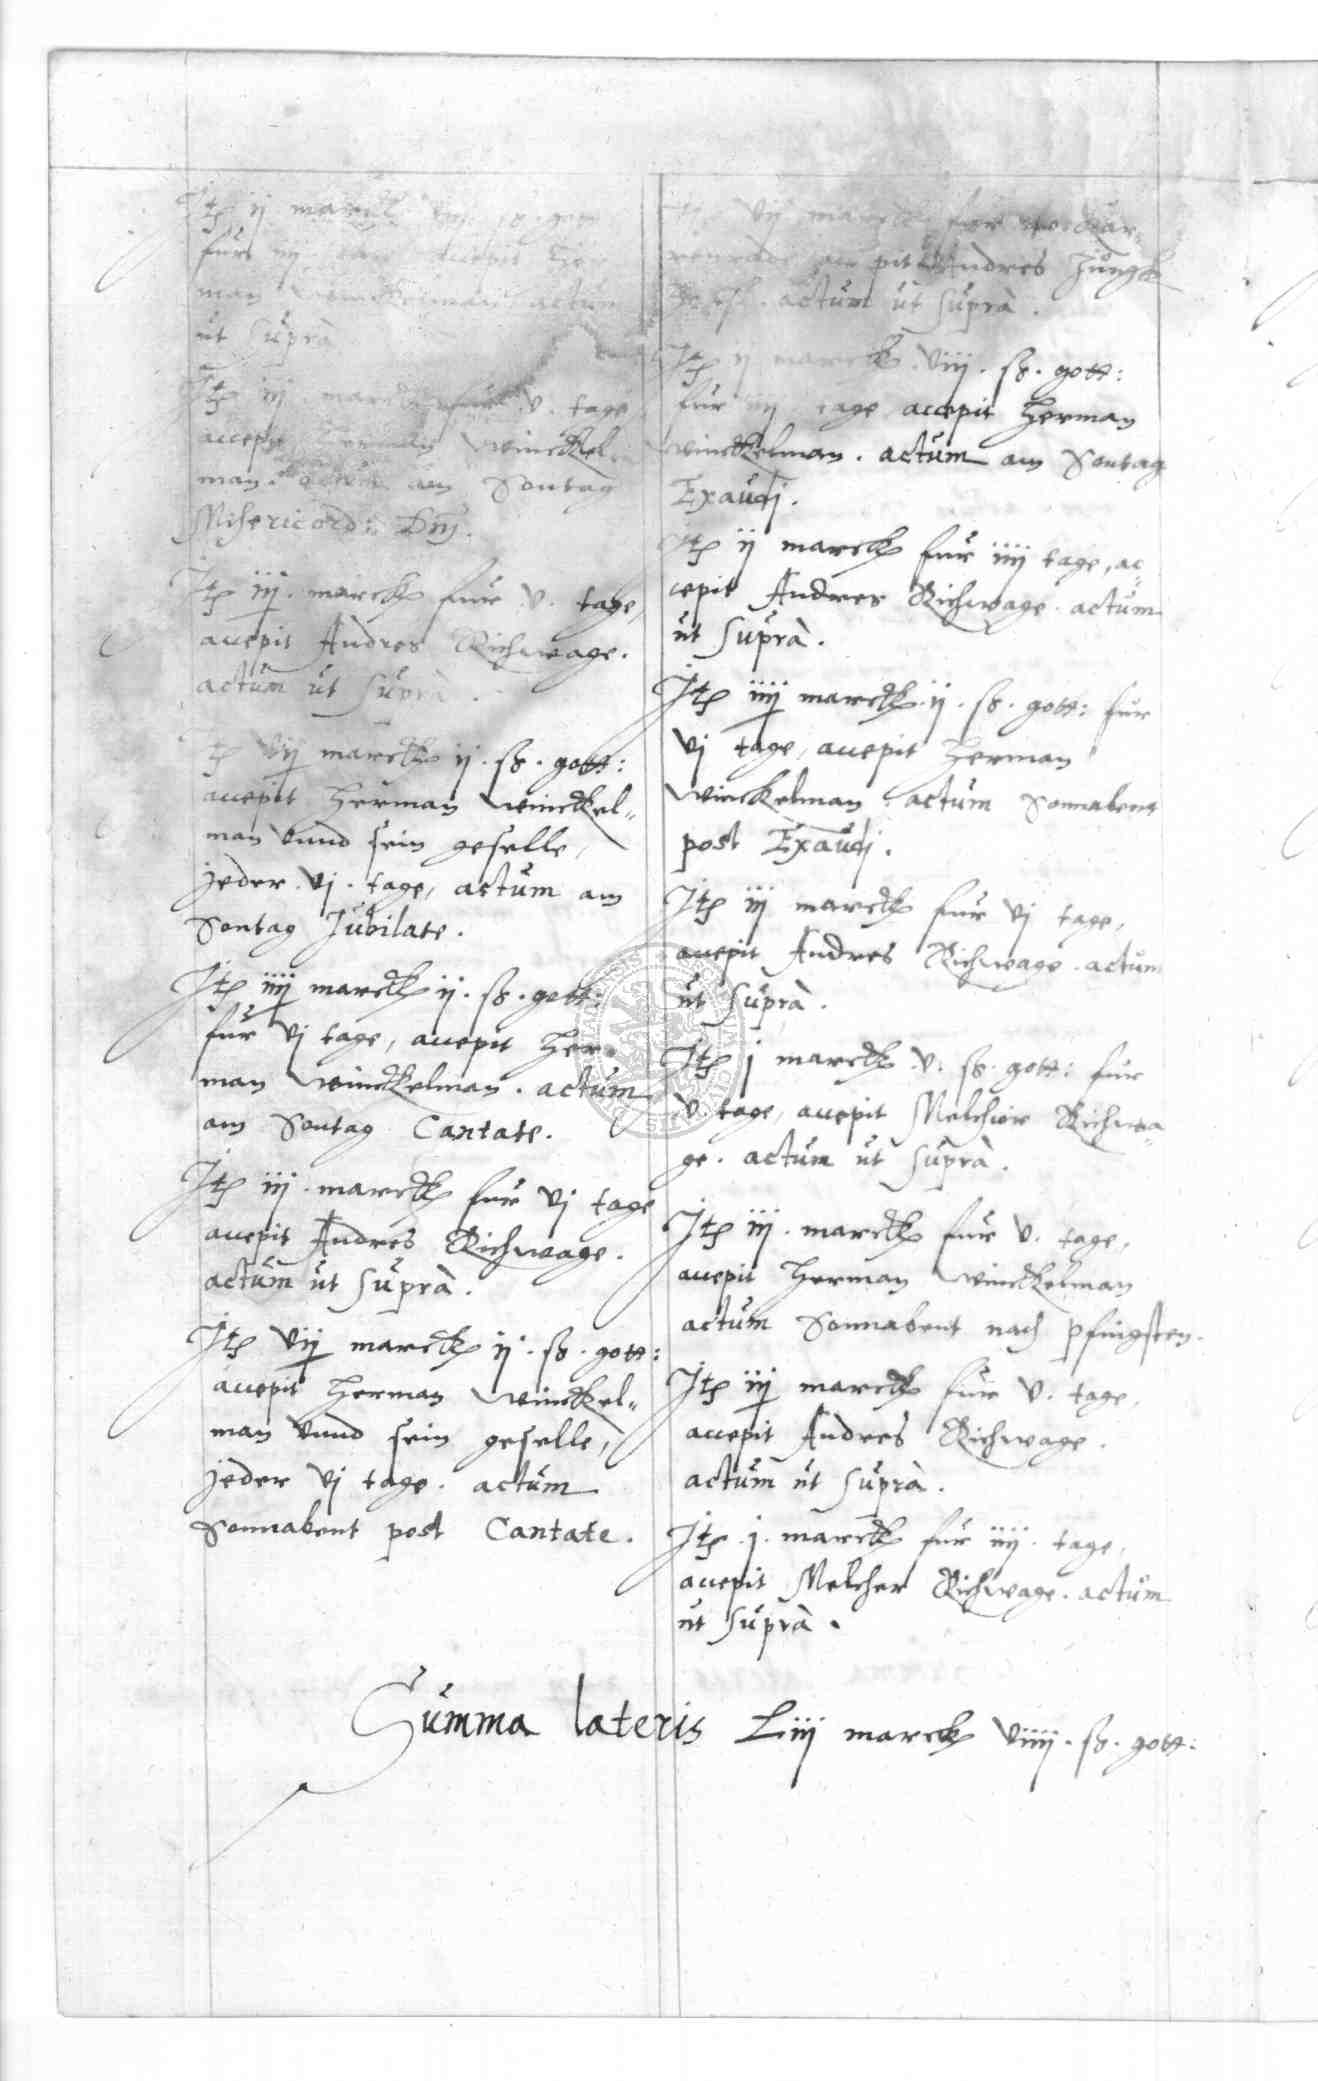 Itẽ ij marck
fur
man Winckelman actum
ut supra
Itẽ iij marck fur v. tage
accepit Herman Winckel-
man. actum am Sontag
Misericord: Dñj.
Itẽ iij. marck fur v. tage,
accepit Andres Richwage.
actum ut supra.
Itẽ vij marck ij. ß. gott:
accepit Herman Winckel-
man vnnd sein geselle,
jeder vj. tage, actum am
Sontag Jubilate.
Itẽ iiij marck ij. ß. gott:
fur vj tage, accepit Her-
man Winckelman. actum
am Sontag Cantate.
Itẽ iij. marck fur vj tage
accepit Andres Richwage.
actum ut supra.
Itẽ vij marck ij. ß. gott:
accepit Herman Winckel-
man vnnd sein geselle,
jeder vj tage. actum
Sonnabent post Cantate.
vij marck fur
Andres Jungk
actum ut supra.
Itẽ ij marck. viij. ß. gott:
fur iiij tage accepit Herman
Winckelman. actum am Sontag
Exaudj.
Itẽ ij marck fur iiij tage, ac-
cepit Andres Richwage. actum
ut supra.
Itẽ iiij marck. ij. ß. gott: fur
vj tage, accepit Herman
Winckelman. actum Sonnabent
post Exaudj.
Itẽ iij marck fur vj tage,
accepit Andres Richwage. actum
ut supra.
Itẽ j marck v. ß. gott: fur
v. tage, accepit Melchior Richwa-
ge. actum ut supra.
Itẽ iij. marck fur v. tage,
accepit Herman Winckelman
actum Sonnabent nach Pfingsten.
Itẽ iij marck fur v. tage,
accepit Andres Richwage.
actum ut supra.
Itẽ j. marck fur iiij. tage,
accepit Melcher Richwage. actum
ut supra.
Summa lateris Liij marck viiij. ß. gott: